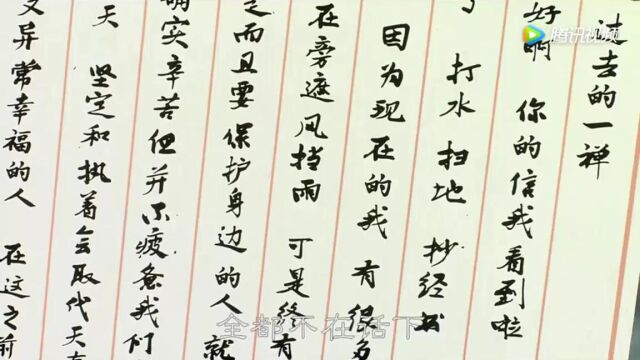 腾讯视频
过去的一禅
好啊 你的信我看到啦
打水 扫地 抄经书
因为现在的我 有很多
在旁遮风挡雨 可是终有
而且要保护身边的人 就
确实辛苦但并不疲惫我们
天 坚定和执着会取代天
异常幸福的人 在这之前
全都不在话下